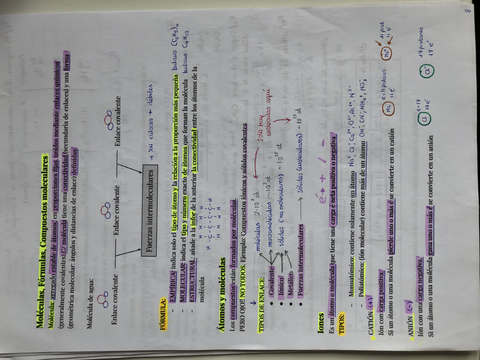 Moléculas, Fórmulas, Compuestos moleculares
Molécula: agregado estable de átomos en proporciones fijas unidos mediante enlaces químicos
(generalmente covalentes). Una molécula tiene una conectividad (secuencia de enlaces) y una forma
(geometría molecular: ángulos y distancias de enlace) definidas.
Molécula de agua:
Enlace covalente
Enlace covalente
Enlace covalente
Fuerzas intermoleculares
→ no enlaces → débiles
FÓRMULA:
- EMPÍRICA: indica solo el tipo de átomos y la relación a la proporción más pequeña butano (C2H5)n
- MOLECULAR: indica el tipo y número exacto de átomos que forman la molécula butano C4H10
- ESTRUCTURAL: añade a la info de la anterior la conectividad entre los átomos de la
molécula
H H H H
H-C-C-C-C-H
H H H H
Átomos y moléculas
Los compuestos están formados por moléculas
PERO OJO! NO TODOS. Ejemplo: Compuestos iónicos y sólidos covalentes
TIPOS DE ENLACE:
- Covalente
- Iónico
- Metálico
- Fuerzas intermoleculares
moléculas
macromoléculas
sólidos (no moleculares)
→ Sólidos (moleculares)
no hay
moléculas aquí
Iones
Es un átomo o molécula que tiene una carga eléctrica positiva o negativa.
TIPOS:
- Monoatómico: contiene solamente un átomo
- Poliatómico: (ión molecular) contiene más de un átomo
CATIÓN (+)
Ión con carga positiva.
Si un átomo o una molécula pierde uno o más e- se convierte en un catión
ANIÓN (-)
Ión con carga negativa.
Si un átomo o una molécula gana uno o más e- se convierte en un anión
11 protones
11 e-
Na
Na+
Cl
17 e-
17 protones
Cl-
8